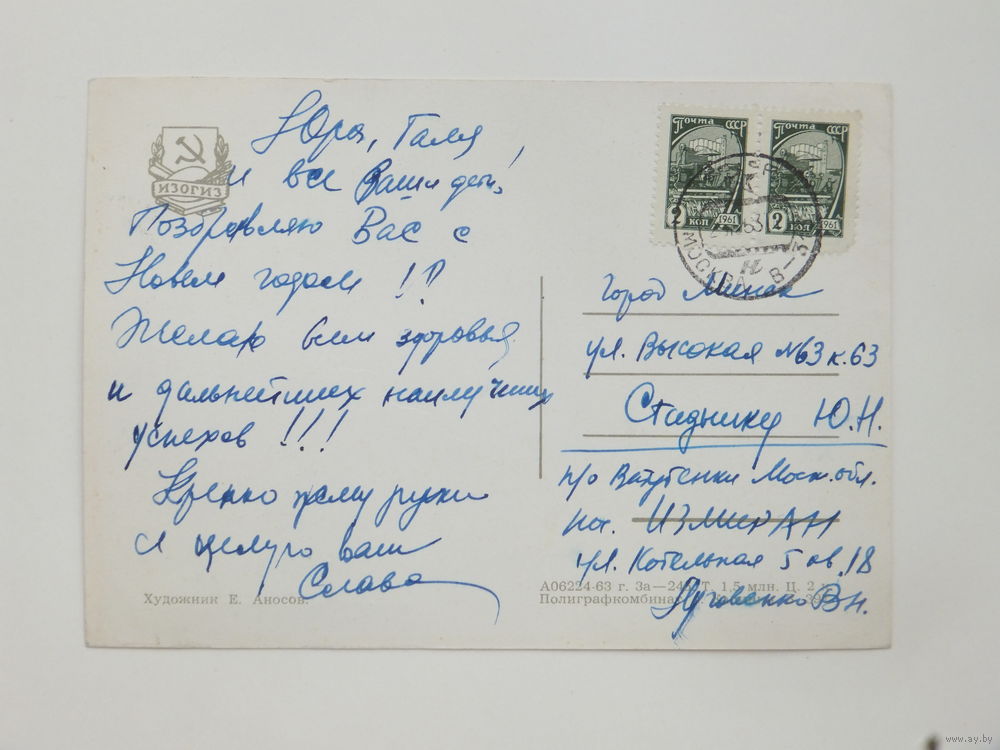 Юра, Галя
и все Ваши дети!
Поздравляю Вас с
Новым годом!!!
Желаю всем здоровья
и дальнейших наилучших
успехов!!!
Крепко жму руки
и целую ваш
Слава
ИЗОГИЗ
Художник Е. Аносов.
Почта СССР
2 коп 1961
Почта СССР
2 коп 1961
МОСКВА В-3
63
Город Минск
ул. Высокая №63 к. 63
Стаднику Ю.Н.
п/о Ватутенки Моск. обл.
ИЗМИРАН
ул. Котельная 5 кв. 18
В Н.
А06224-63 г. За—24 Т. 1,5 млн. Ц. 2
Полиграфкомбинат
www.ay.by